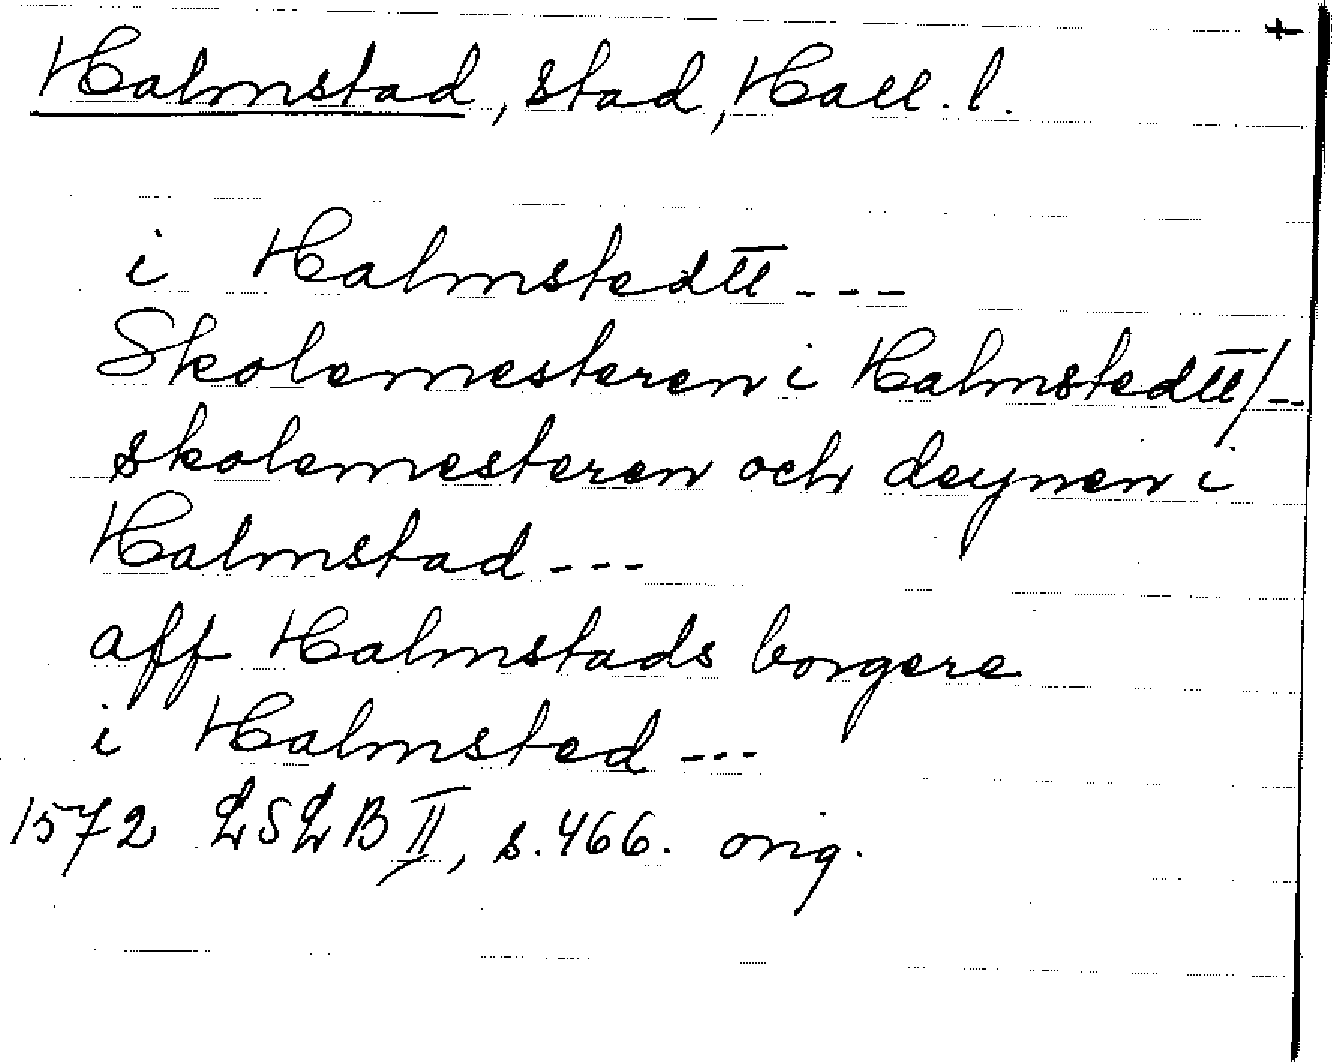 +
Halmstad, stad, Hall. l.
i Halmstedtt ---
Skolemesteren i Halmstedtt/--
skolemesteren och deynen i
Halmstad ---
aff Halmstads borgere
i Halmsted ---
1572 LSLB II, s. 466. orig.